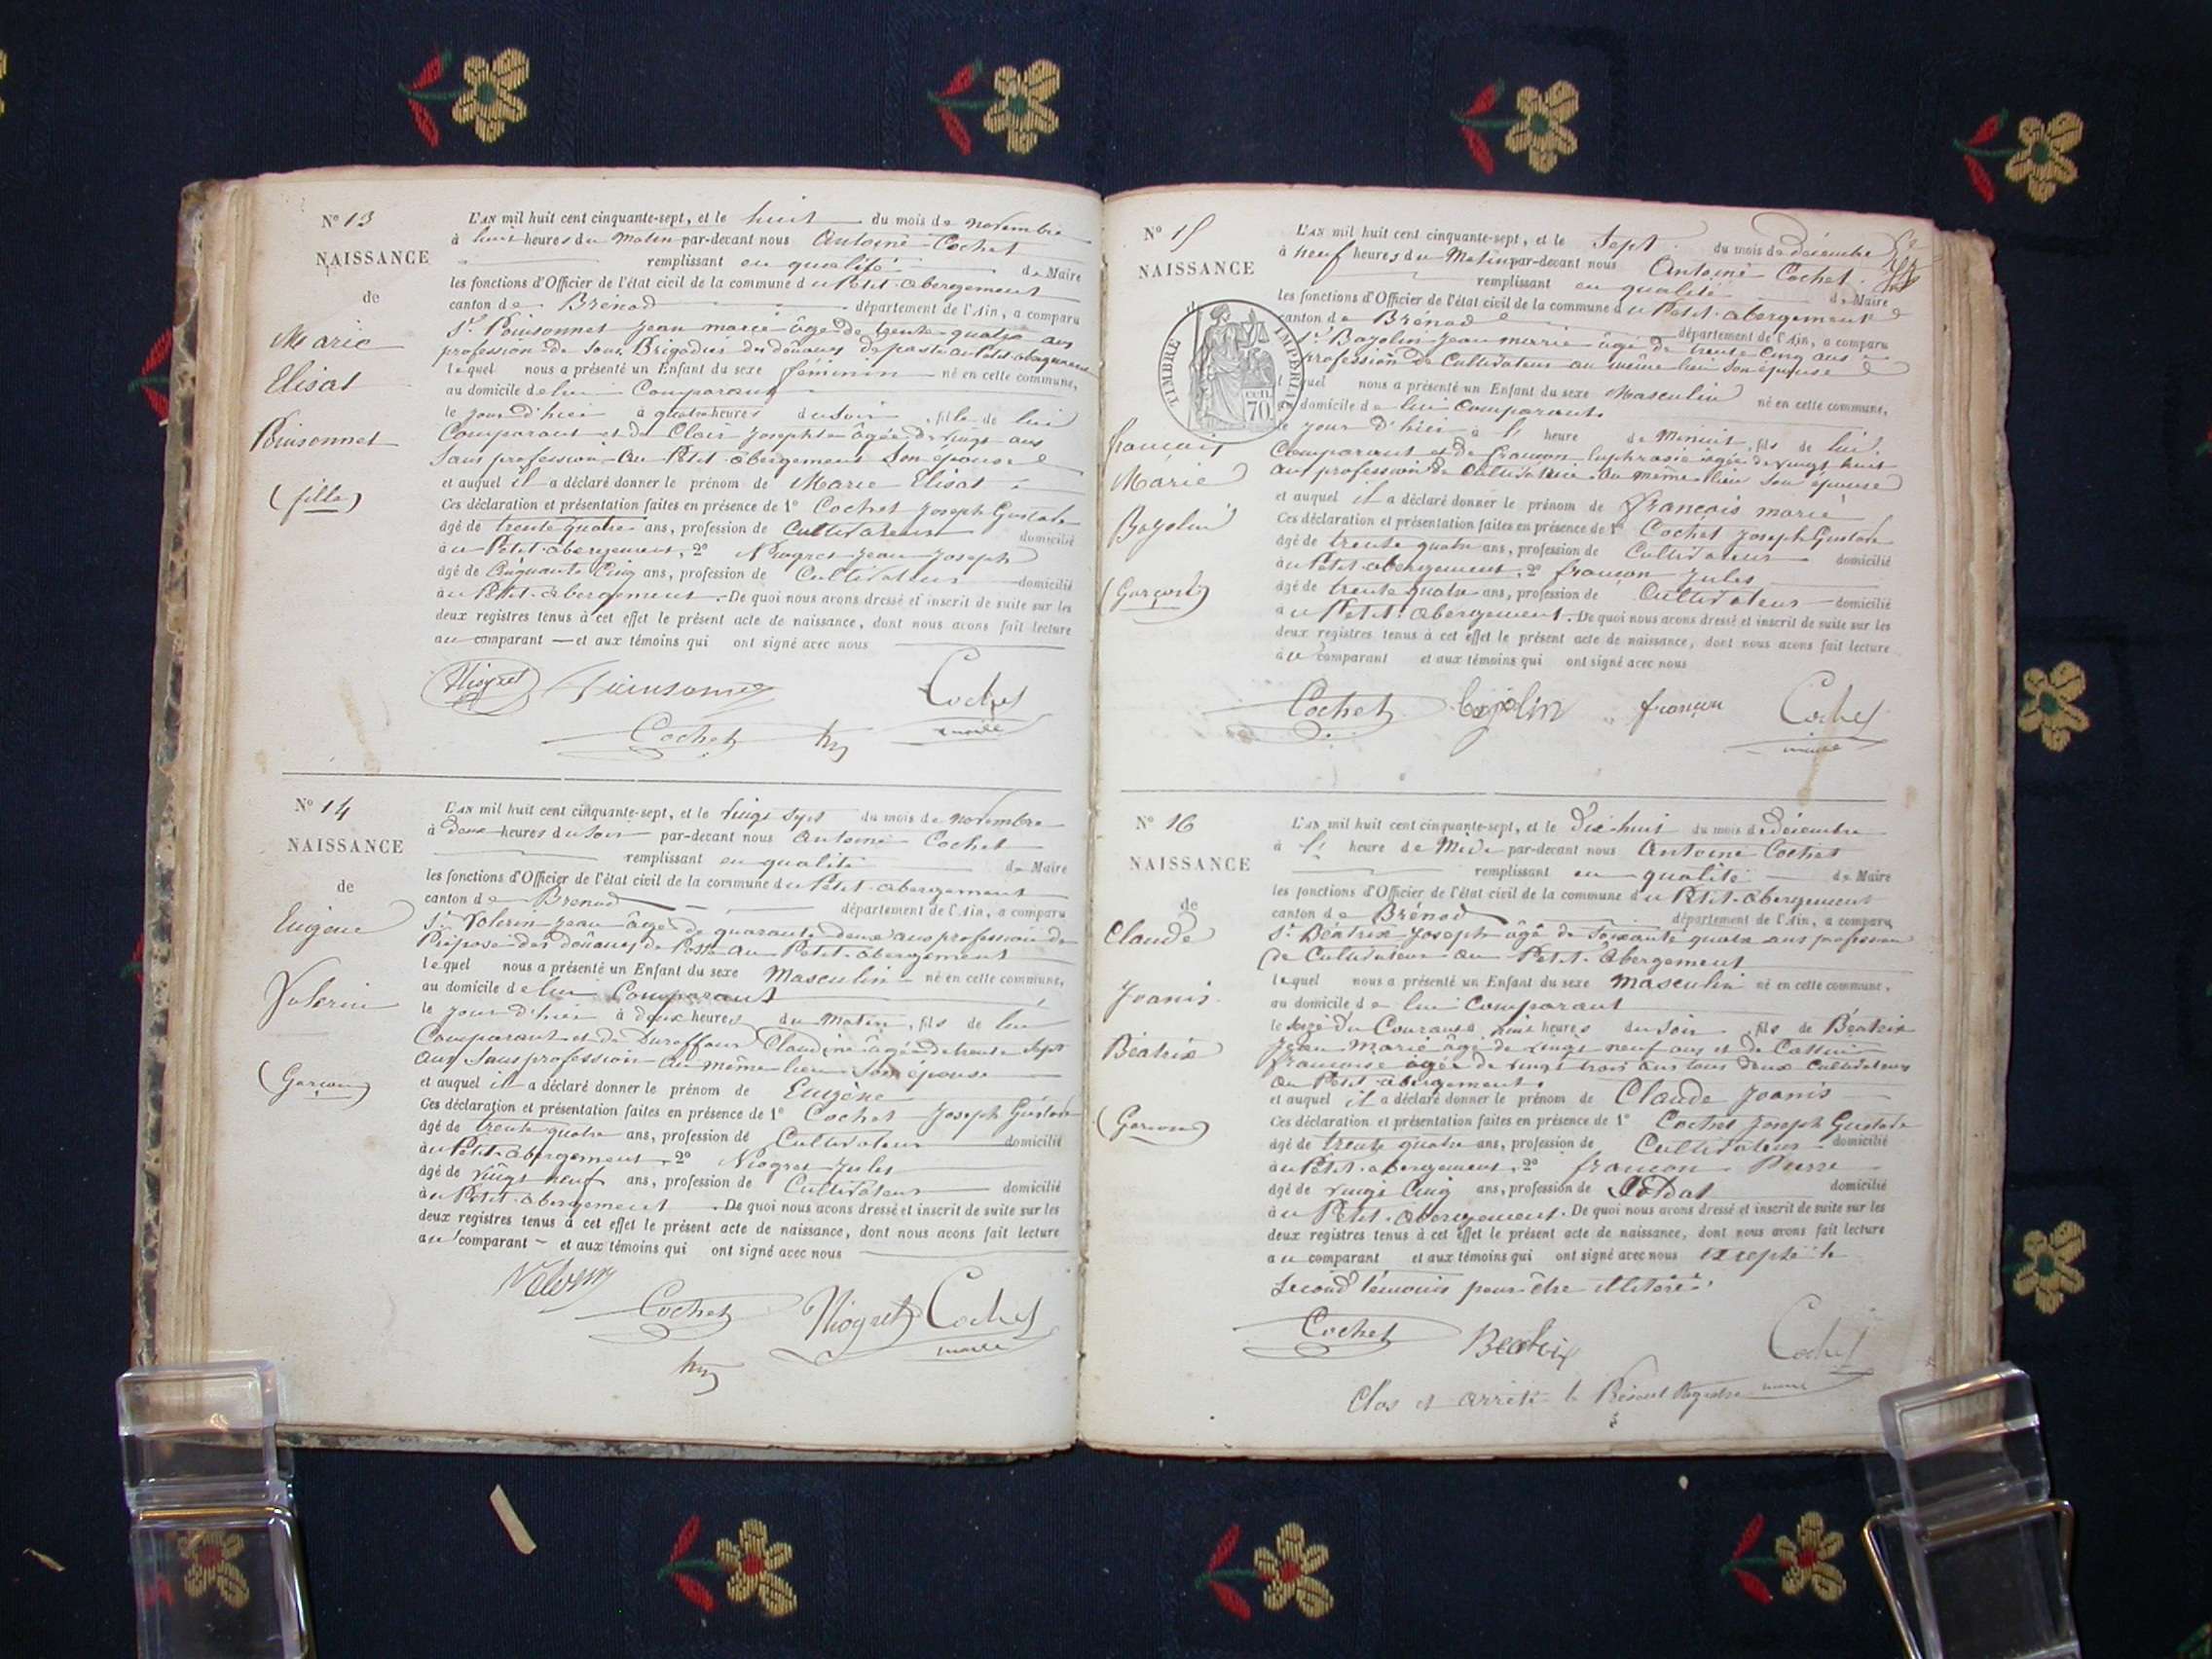 N° 13
NAISSANCE
de
Marie
Elisat
Poinsonnet
(fille)
L'AN mil huit cent cinquante-sept, et le huit du mois de novembre
à huit heures du matin par-devant nous Antoine Cochet
remplissant en qualité de Maire
les fonctions d'Officier de l'état civil de la commune du Petit-abergement
canton de Brénod département de l'Ain, a comparu
Sr Poinsonnet Jean marie âgé de trente-quatre ans
profession de Sous Brigadier des douanes de poste au Petit abergement
lequel nous a présenté un Enfant du sexe féminin né en cette commune,
au domicile de lui Comparant
le jour d'hier à quatre heures du soir, fille de lui
Comparant et de Clair Josephte âgée de vingt ans
Sans profession Au Petit-abergement Son épouse
et auquel il a déclaré donner le prénom de Marie Elisat
Ces déclaration et présentation faites en présence de 1° Cochet Joseph Gustave
âgé de trente quatre ans, profession de Cultivateur domicilié
au Petit-abergement, 2° Niogret Jean Joseph
âgé de Cinquante Cinq ans, profession de Cultivateur domicilié
au Petit-abergement. De quoi nous avons dressé et inscrit de suite sur les
deux registres tenus à cet effet le présent acte de naissance, dont nous avons fait lecture
au comparant et aux témoins qui ont signé avec nous
Niogret Poinsonnet Cochet
Cochet maire
N° 14
NAISSANCE
de
Eugène
Volerin
(Garçon)
L'AN mil huit cent cinquante-sept, et le vingt sept du mois de novembre
à deux heures du soir par-devant nous Antoine Cochet
remplissant en qualité de Maire
les fonctions d'Officier de l'état civil de la commune du Petit-abergement
canton de Brenod département de l'Ain, a comparu
Sr Volerin Jean âgé de quarante deux ans profession de
Préposé des douanes de Poste au Petit-abergement
lequel nous a présenté un Enfant du sexe Masculin né en cette commune,
au domicile de lui Comparant
le jour d'hier à deux heures du matin, fils de lui
Comparant et de Duraffour Claudine âgée de trente sept
ans Sans profession Au même lieu Son épouse
et auquel il a déclaré donner le prénom de Eugène
Ces déclaration et présentation faites en présence de 1° Cochet Joseph Gustave
âgé de trente quatre ans, profession de Cultivateur domicilié
au Petit-abergement, 2° Niogret Jules
âgé de vingt neuf ans, profession de Cultivateur domicilié
au Petit-abergement. De quoi nous avons dressé et inscrit de suite sur les
deux registres tenus à cet effet le présent acte de naissance, dont nous avons fait lecture
au comparant et aux témoins qui ont signé avec nous
Volerin
Cochet Niogret Cochet
maire
N° 15
NAISSANCE
de
TIMBRE IMPÉRIAL
CEN. 70
françois
Marie
Bajolin
(Garçon)
L'AN mil huit cent cinquante-sept, et le Sept du mois de décembre
à neuf heures du Matin par-devant nous Antoine Cochet
remplissant en qualité de Maire
les fonctions d'Officier de l'état civil de la commune du Petit-abergement
canton de Brénod département de l'Ain, a comparu
Sr Bajolin Jean marie âgé de trente Cinq ans
profession de Cultivateur au même lieu son épouse
lequel nous a présenté un Enfant du sexe Masculin né en cette commune,
au domicile de lui Comparant
le jour d'hier à l' heure de Minuit, fils de lui
Comparant et de françon Euphrasie âgée de vingt huit
ans profession de Cultivatrice Au même lieu Son épouse
et auquel il a déclaré donner le prénom de françois marie
Ces déclaration et présentation faites en présence de 1° Cochet Joseph Gustave
âgé de trente quatre ans, profession de Cultivateur domicilié
au Petit-abergement, 2° françon Jules
âgé de trente quatre ans, profession de Cultivateur domicilié
au Petit-abergement. De quoi nous avons dressé et inscrit de suite sur les
deux registres tenus à cet effet le présent acte de naissance, dont nous avons fait lecture
au comparant et aux témoins qui ont signé avec nous
Cochet Bajolin françon Cochet
maire
N° 16
NAISSANCE
de
Claude
Joanis
Béatrix
(Garçon)
L'AN mil huit cent cinquante-sept, et le dix-huit du mois de décembre
à l' heure de Midi par-devant nous Antoine Cochet
remplissant en qualité de Maire
les fonctions d'Officier de l'état civil de la commune du Petit-abergement
canton de Brénod département de l'Ain, a comparu
Sr Béatrix Joseph âgé de soixante quatre ans profession
de Cultivateur au Petit-abergement
lequel nous a présenté un Enfant du sexe masculin né en cette commune,
au domicile de lui Comparant
le seize du Courant à huit heures du soir, fils de Béatrix
Jean Marie âgé de vingt neuf ans et de
françoise âgée de vingt trois ans tous deux Cultivateurs
au Petit abergement.
et auquel il a déclaré donner le prénom de Claude Joanis
Ces déclaration et présentation faites en présence de 1° Cochet Joseph Gustave
âgé de trente quatre ans, profession de Cultivateur domicilié
au Petit-abergement, 2° françon Pierre
âgé de vingt Cinq ans, profession de Soldat domicilié
au Petit-abergement. De quoi nous avons dressé et inscrit de suite sur les
deux registres tenus à cet effet le présent acte de naissance, dont nous avons fait lecture
au comparant et aux témoins qui ont signé avec nous excepté le
second témoin pour être illiteré.
Cochet Beatrix Cochet
Clos et arrêté le Présent Registre maire